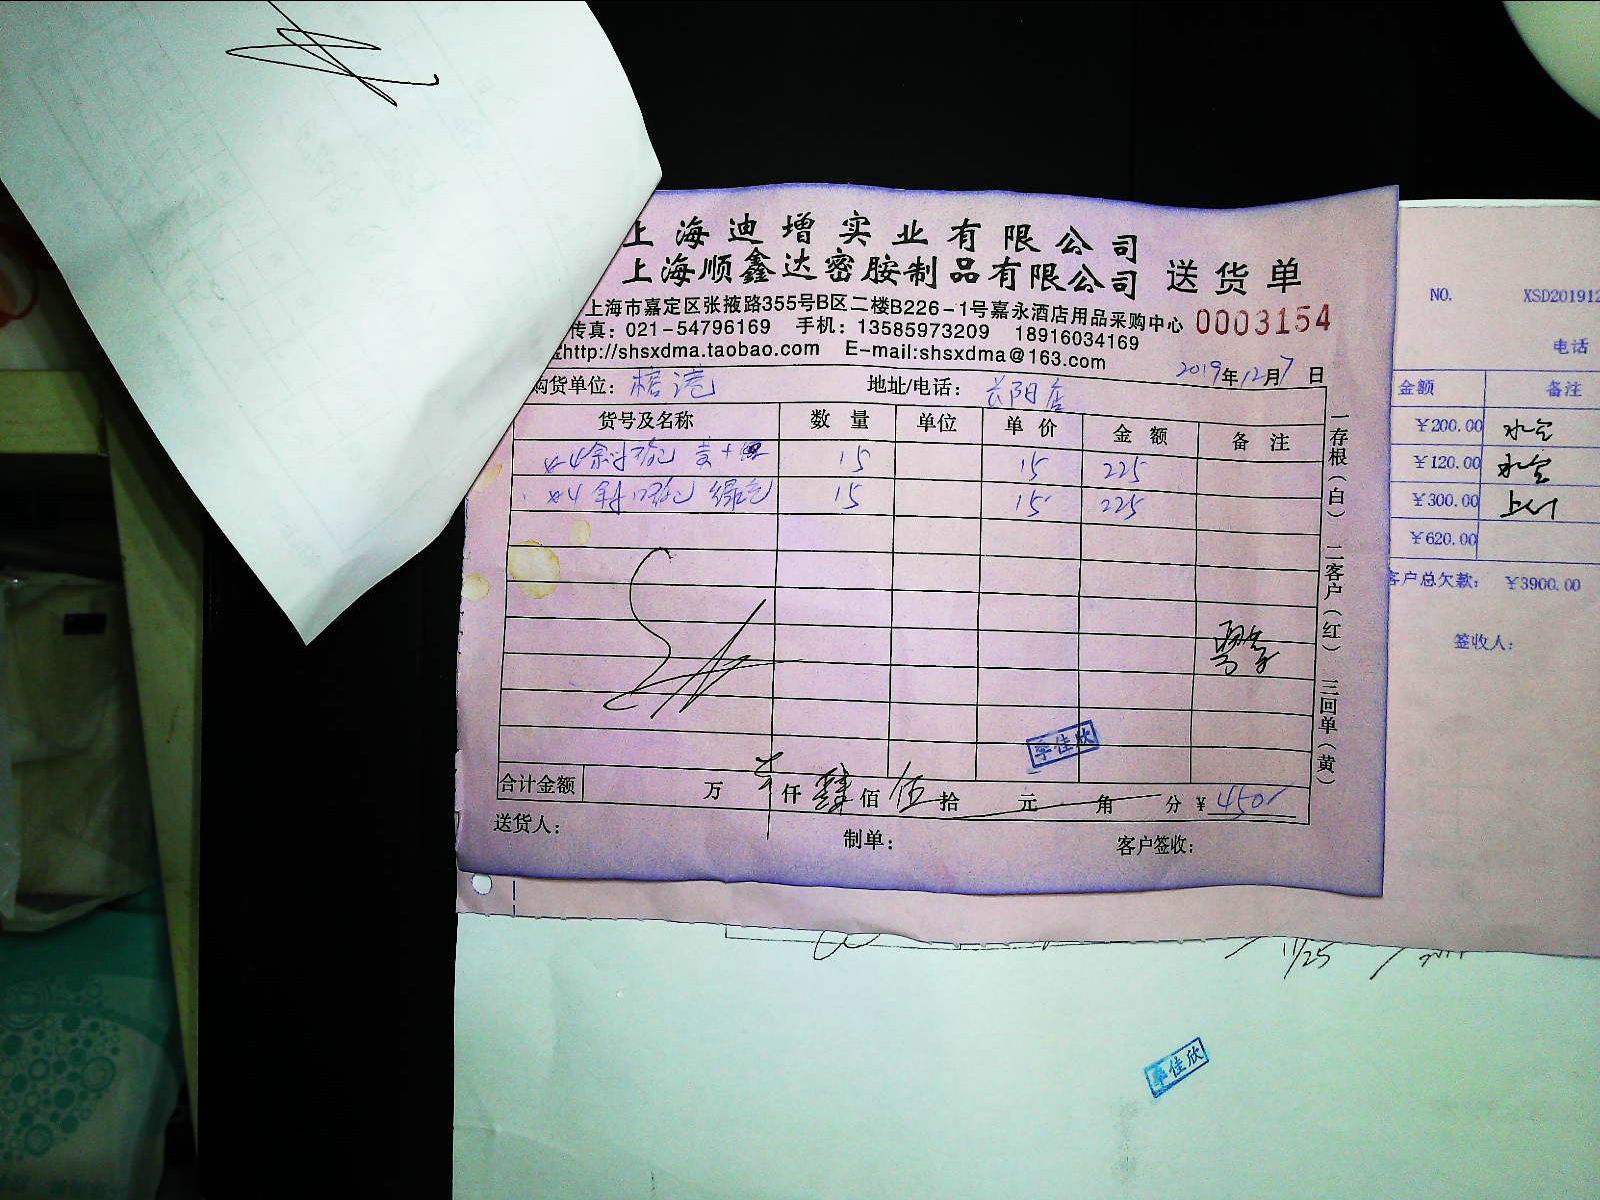 上海迪增实业有限公司
上海顺鑫达密胺制品有限公司 送货单
上海市嘉定区张掖路355号B区二楼B226-1号嘉永酒店用品采购中心 0003154
传真：021-54796169 手机：13585973209 18916034169
http://shsxdma.taobao.com E-mail:shsxdma@163.com
2019年12月7日
购货单位： 地址/电话：长阳店
货号及名称 数量 单位 单价 金额 备注
15 15 225
绿色 15 15 225
李佳欣
合计金额 万 仟 肆 佰 伍 拾 元 角 分 ¥ 450
送货人： 制单： 客户签收：
一存根（白） 二客户（红） 三回单（黄）
NO. XSD201912
电话
金额 备注
¥200.00
¥120.00
¥300.00
¥620.00
客户总欠款： ¥3900.00
签收人：
11/25
李佳欣